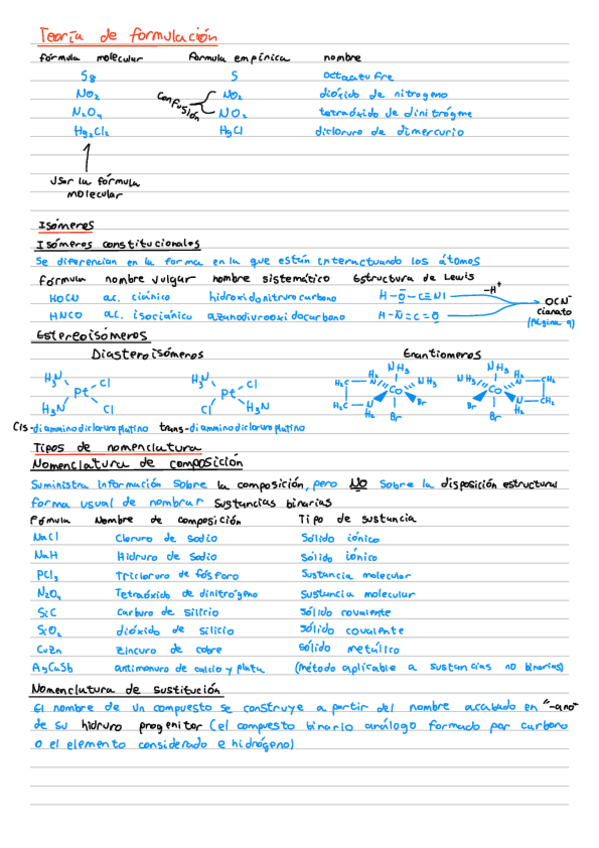 Teoría de formulación
fórmula molecular Formula empírica nombre
S8 S octaazufre
NO2 NO2 dióxido de nitrogeno
confusión
N2O4 NO2 tetraóxido de dinitrógeno
Hg2Cl2 HgCl dicloruro de dimercurio
Usar la fórmula
molecular
Isómeros
Isómeros constitucionales
Se diferencian en la forma en la que están interactuando los átomos
fórmula nombre vulgar nombre sistemático Estructura de Lewis
HOCN ac. ciánico hidroxidonitrurocarbono H-O-C≡N| -H+
OCN-
HNCO ac. isociánico azanodiurooxidocarbono H-N=C=O
cianato
(página 9)
Estereoisómeros
Diasteroisómeros Enantiomeros
H3N Cl Pt H3N Cl
H3N Cl Pt Cl H3N
H2C H2C H2 N N H2 NH3 NH3 Co Br Br
NH3 NH3 Co Br Br H2 N N H2 CH2 CH2
Cis-diamminodicloruroplatino trans-diamminodicloruroplatino
Tipos de nomenclatura
Nomenclatura de composición
Suministra información sobre la composición, pero NO sobre la disposición estructural
forma usual de nombrar sustancias binarias
Fórmula Nombre de composición Tipo de sustancia
NaCl Cloruro de sodio Sólido iónico
NaH Hidruro de sodio Sólido iónico
PCl3 Tricloruro de fósforo Sustancia molecular
N2O4 Tetraóxido de dinitrógeno Sustancia molecular
SiC Carburo de silicio Sólido covalente
SiO2 dióxido de silicio sólido covalente
CuZn Zincuro de cobre sólido metálico
AgCaSb antimonuro de calcio y plata (método aplicable a sustancias no binarias)
Nomenclatura de sustitución
El nombre de un compuesto se construye a partir del nombre acabado en "-ano"
de su hidruro progenitor (el compuesto binario análogo formado por carbono
o el elemento considerado e hidrógeno)